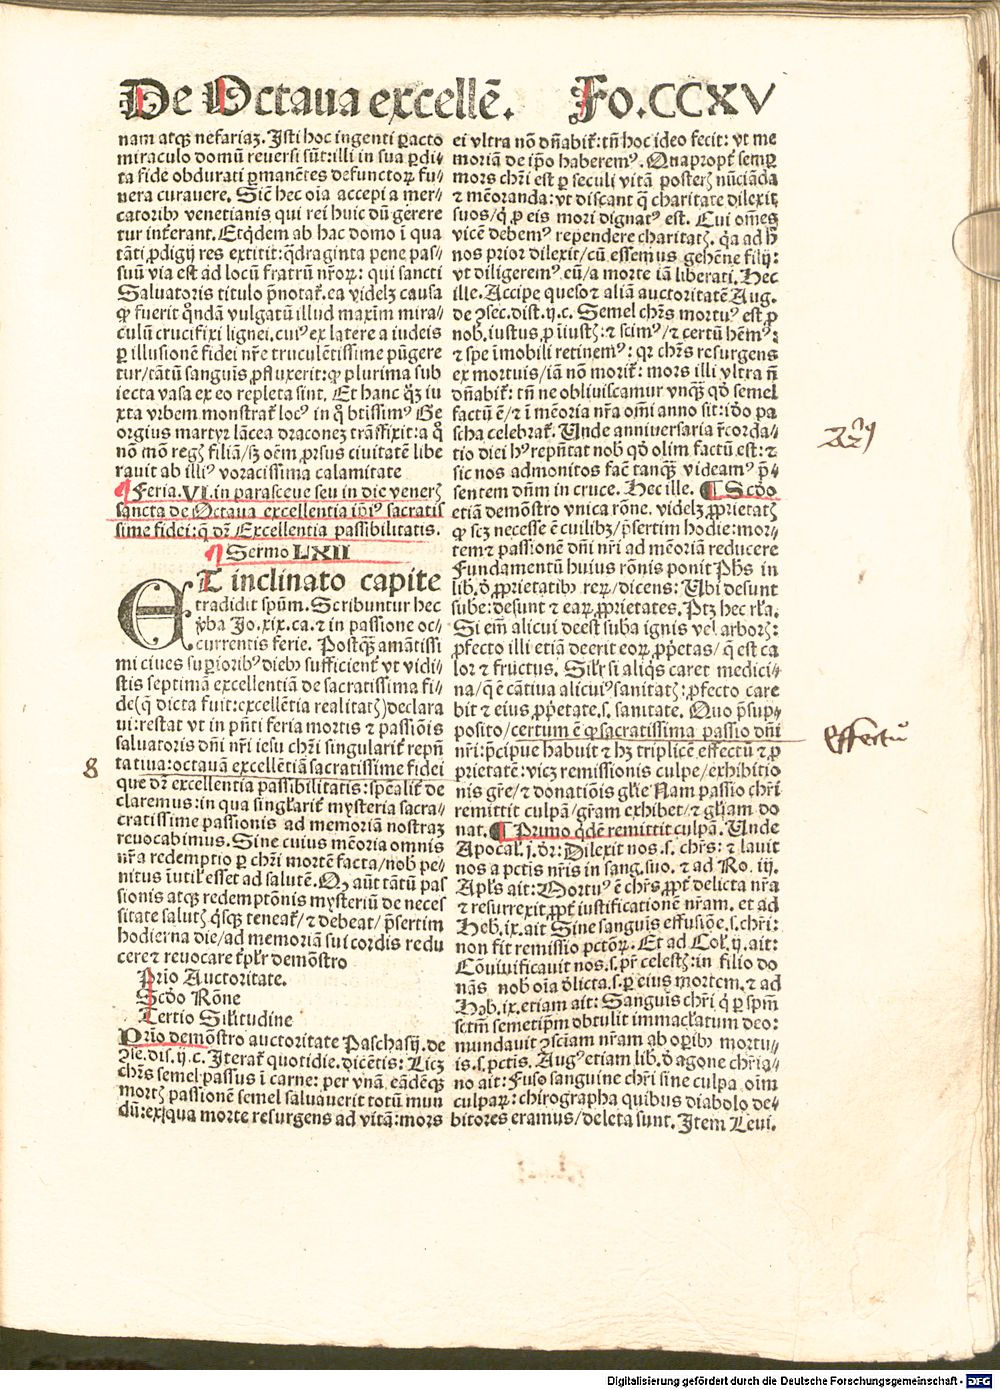 De Octaua excellē. Fo.CCXV
nam atqꝫ nefariaꝫ. Isti hoc ingenti ꝑacto
miraculo domū reuersi sūt: illi in sua ꝑdi⸗
ta fide obdurati ꝑmanētes defunctoꝝ fu⸗
nera curauere. Sic̄ hec oīa accepi a mer⸗
catoribꝰ venetianis qui rei huic dū gerere
tur intᵉrant. Etq̇dem ab hac domo ī qua
tāti ꝓdigij res extitit: q̄draginta pene pas⸗
suū via est ad locū fratrū nr̄oꝝ: qui sancti
Saluatoris titulo p̄notat̄. ea videlꝫ causa
ꝙ fuerit q̇ndā vulgatū illud maxim̄ mira⸗
culū crucifixi lignei. cuiꝰ ex latere a iudeis
ꝑ illusionē fidei nr̄e truculētissime pūgere
tur/tātū sanguīs ꝓfluxerit: ꝙ plurima sub
iecta vasa ex eo repleta sint. Et hanc q̄ꝫ iu
xta vrbem monstrat̄ locꝰ in q̇ btissimꝰ Ge
orgius martyr lācea draconeꝫ trāsfixit: a q̇
nō mō regꝭ filiā/sꝫ oēm ꝓrsus ciuitatē libe
rauit ab illiꝰ voracissima calamitate
¶ Feria.VI. in parasceue seu in die venerꝭ
sancta de Octaua excellentia ip̄iꝰ sacratis
sime fidei: q̄ dr̄ Excellentia passibilitatis.
¶ Sermo LXII
ET inclinato capite
tradidit spūm. Scribuntur hec
v̄ba Jo. xix. ca. ⁊ in passione oc⸗
currentis ferie. Postq̄ꝫ amātissi
mi ciues suꝑioribꝰ diebꝰ sufficient̄ vt vidi⸗
stis septimā excellentiā de sacratissima fi⸗
de(q̄ dicta fuit: excellētia realitatꝭ)declara
ui: restat vt in pn̄ti feria mortis ⁊ passiōis
saluatoris dn̄i nr̄i iesu chr̄i singularit̄ repn̄
8 tatiua: octauā excellētiā sacratissime fidei
que dr̄ excellentia passibilitatis: spēalit̄ de
claremus: in qua singl̄arit̄ mysteria sacra⸗
cratissime passionis ad memoriā nostraꝫ
reuocabimus. Sine cuius mēoria omnis
nr̄a redemptio ꝑ chr̄i mortē facta/nob̄ pe⸗
nitus īutil̄ esset ad salutē. Qꝫ aūt tātū pas
sionis atqꝫ redemptōnis mysteriū de neces
sitate salutꝭ q̇sqꝫ teneat̄/⁊ debeat/p̄sertim
hodierna die/ad memoriā sui cordis redu
cere ⁊ reuocare tr̄pl̄r demōstro
Prio Auctoritate.
Scd̄o Rōne
Tertio Sil̄itudine
Prio demōstro auctoritate Paschasij. de
ꝯse. dis. ij. c. Iterat̄ quotidie. dicētis: Licꝫ
chr̄s semel passus ī carne: per vnā eādēqꝫ
mortꝭ passionē semel saluauerit totū mun
dū: ex q̇ a morte resurgens ad vitā: mors
ei vltra nō dn̄abit̄: tn̄ hoc ideo fecit: vt me
moriā de ip̄o haberemꝰ. Quapropt̄ semꝑ
mors chr̄i est ꝑ seculi vitā posterꝭ nūciāda
⁊ mēoranda: vt discant q̄ charitate dilexit
suos/q̇ ꝓ eis mori dignatꝰ est. Cui om̄es
vicē debemꝰ rependere charitatꝭ. q̇a ad h̄
nos prior dilexit/cū essemus gehēne filij:
vt diligeremꝰ eū/a morte iā liberati. Hec
ille. Accipe queso ⁊ aliā auctoritatē Aug.
de ꝯsec. dist. ij. c. Semel chr̄s mortuꝰ est ꝓ
nob̄. iustus ꝓ iustꝭ: ⁊ scimꝰ/⁊ certū hēmꝰ:
⁊ spe īmobili retinemꝰ: qꝛ chr̄s resurgens
ex mortuis/iā nō morit̄: mors illi vltra n̄
dn̄abit̄: tn̄ ne obliuiscamur vnq̄ꝫ qd̄ semel
factū ē/⁊ ī mēoria nr̄a om̄i anno sit: id̄o pa
scha celebrat̄. Unde anniuersaria r̄corda⸗
tio diei hꝰ repn̄tat nob̄ qd̄ olim factū est: ⁊
sic nos admonitos fac̄ tanq̄ꝫ videamꝰ p̄⸗
sentem dn̄m in cruce. Hec ille. ¶ Scd̄o
etiā demōstro vnica rōne. videlꝫ ꝓprietatꝭ
ꝙ scꝫ necesse ē cuilibꝫ/p̄sertim hodie: mor⸗
tem ⁊ passionē dn̄i nr̄i ad mēoriā reducere
Fundamentū huius rōnis ponit Ph̄s in
lib. d̄ ꝓprietatibꝰ reꝝ/dicens: Ubi desunt
sub̄e: desunt ⁊ eaꝝ ꝓprietates. Ptꝫ hec rl̄a.
Si em̄ alicui deest sub̄a ignis vel arborꝭ:
ꝓfecto illi etiā deerit eoꝝ ꝓp̄etas/q̄ est ca
lor ⁊ fructus. Sil̄r si aliq̇s caret medici⸗
na/q̄ ē cātiua alicuiꝰ sanitatꝭ: ꝓfecto care
bit ⁊ eius ꝓp̄etate. s. sanitate. Quo p̄sup⸗
posito/certum ē ꝙ sacratissima passio dn̄i
nr̄i: p̄cipue habuit ⁊ hꝫ triplicē effectū ⁊ ꝓ
prietatē: vicꝫ remissionis culpe/exhibitio
nis gr̄e/⁊ donatiōis gl̄ie Nam passio chr̄i
remittit culpā/gr̄am exhibet/⁊ gl̄iam do
nat. ¶ Primo q̇dē remittit culpā. Unde
Apocal̄. j. dr̄: Dilexit nos. s. chr̄s: ⁊ lauit
nos a pctīs nr̄is in sang. suo. ⁊ ad Ro. iij.
Apl̄s ait: Mortuꝰ ē chr̄s ꝓpt̄ delicta nr̄a
⁊ resurrexit ꝓpt̄ iustificationē nr̄am. et ad
Heb. ix. ait Sine sanguīs effusiōe. s. chr̄i:
non fit remissio pctōꝝ. Et ad Col̄. ij. ait:
Cōuiuificauit nos. s. pr̄ celestꝭ: in filio do
nās nob̄ oīa d̄licta. s. ꝑ eius mortem. ⁊ ad
Heb. ix. etiam ait: Sanguis chr̄i q̇ ꝑ spm̄
sctm̄ semetip̄m obtulit immacl̄atum deo:
mundauit ꝯsciam nr̄am ab oꝑibꝰ mortu⸗
is. s. pctis. Augꝰ etiam lib. d̄ agone chr̄ia⸗
no ait: Fuso sanguine chr̄i sine culpa oīm
culpaꝝ: chirographa quibus diabolo de⸗
bitores eramus/deleta sunt. Item Leui.
effectū
Digitalisierung gefördert durch die Deutsche Forschungsgemeinschaft - DFG